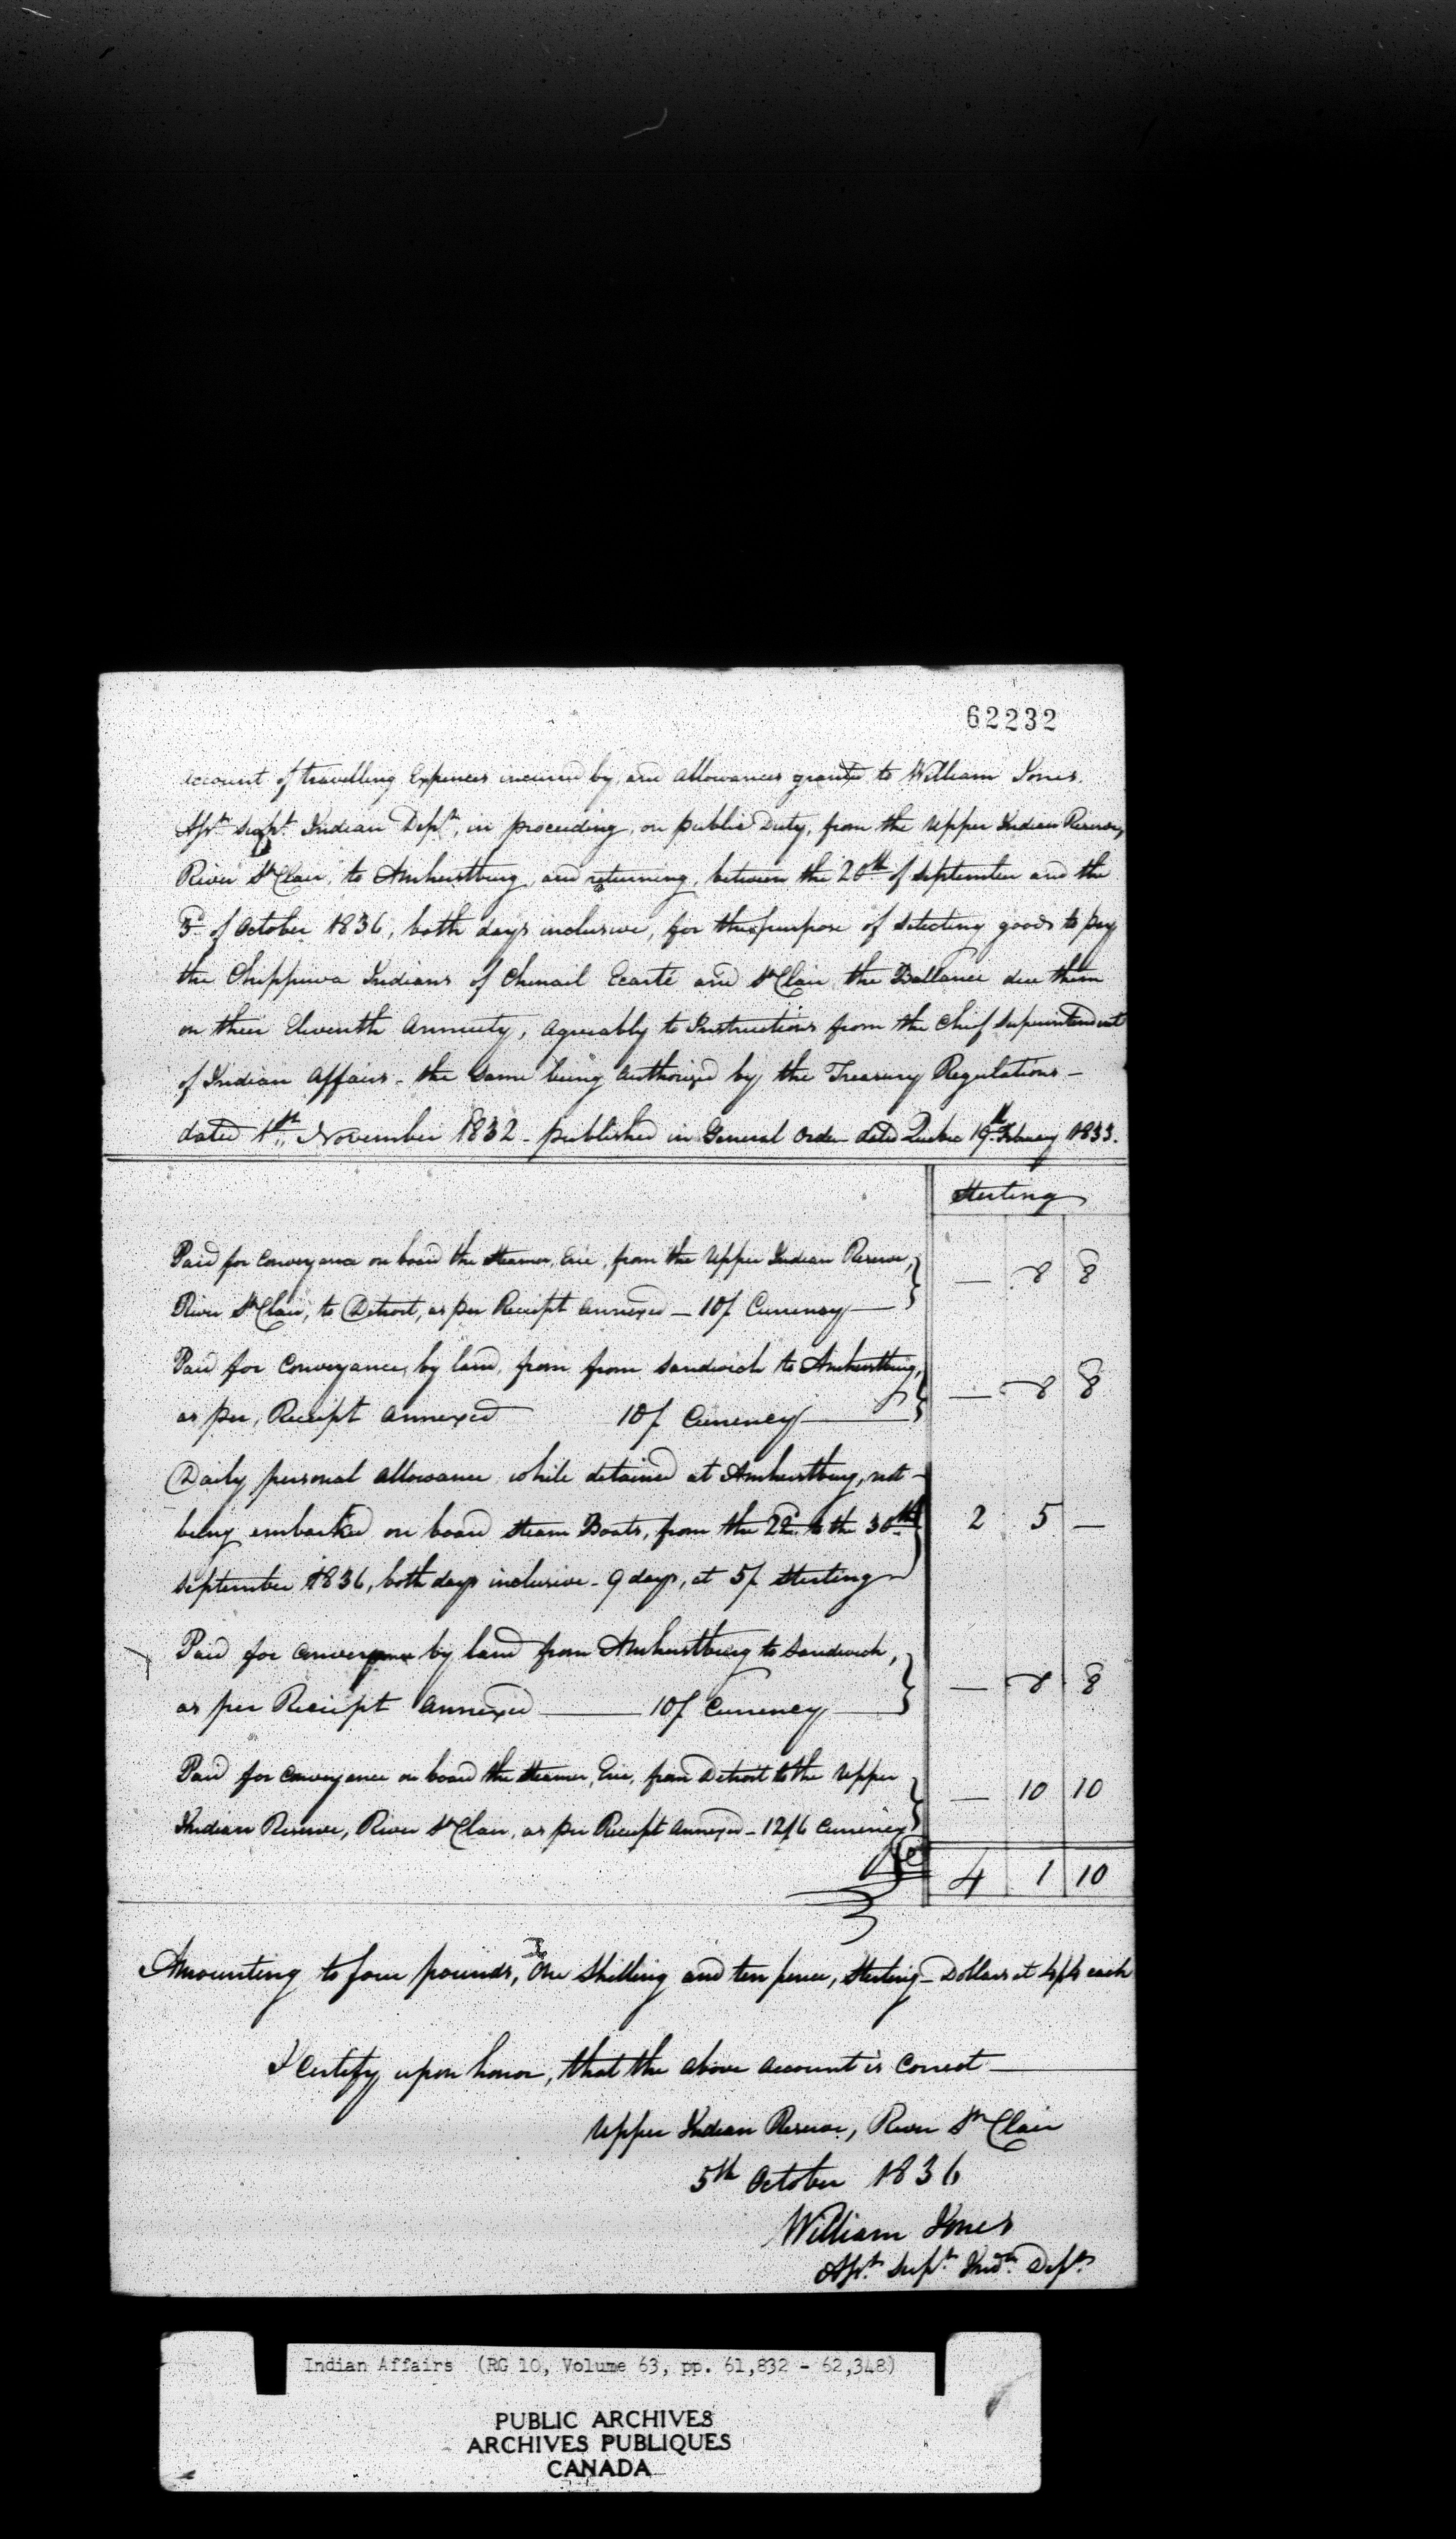 62232
Account of travelling Expences incurred by, and allowances granted to William Jones.
Asst. Supt. Indian Dept., in proceeding, on public Duty, from the Upper Indian Reserve,
River St. Clair, to Amherstburg, and returning, between the 20th of September and the
3d of October 1836, both days inclusive, for the purpose of selecting goods to pay
the Chippewa Indians of Chenail Ecarté and St. Clair the Ballance due them
on their Eleventh Annuity, agreeably to Instructions from the Chief Superintendent
of Indian Affairs - the same being authorized by the Treasury Regulations -
dated 1st November 1832 - published in General Order dated Quebec 19th February 1833.
Sterling
Paid for Conveyance on board the Steamer, Erie, from the Upper Indian Reserve,
River St. Clair, to Detroit, as per Receipt annexed - 10/ Currency — — 8 8
Paid for Conveyance, by land, from from Sandwich to Amherstburg,
as per, Receipt annexed 10/ Currency — — 8 8
Daily personal allowance while detained at Amherstburg, not -
being embarked on board Steam Boats, from the 22d. to the 30th 2 5 —
September 1836, both days inclusive - 9 days, at 5/ Sterling
Paid for conveyance by land from Amherstburg to Sandwich,
as per Receipt annexed — 10/ Currency — — 8 8
Paid for conveyance on board the Steamer, Erie, from Detroit to the Upper — 10 10
Indian Reserve, River St. Clair, as per Receipt annexed - 12/6 Currency
£ 4 1 10
Amounting to four pounds, One Shilling and ten pence, Sterling - Dollars at 4/4 each
I Certify upon honor, that the above account is Correct —
Upper Indian Reserve, River St. Clair
5th October 1836
William Jones
Asst. Supt. Indn. Dept.
Indian Affairs (RG 10, Volume 63, pp. 61,832 - 62,348)
PUBLIC ARCHIVES
ARCHIVES PUBLIQUES
CANADA